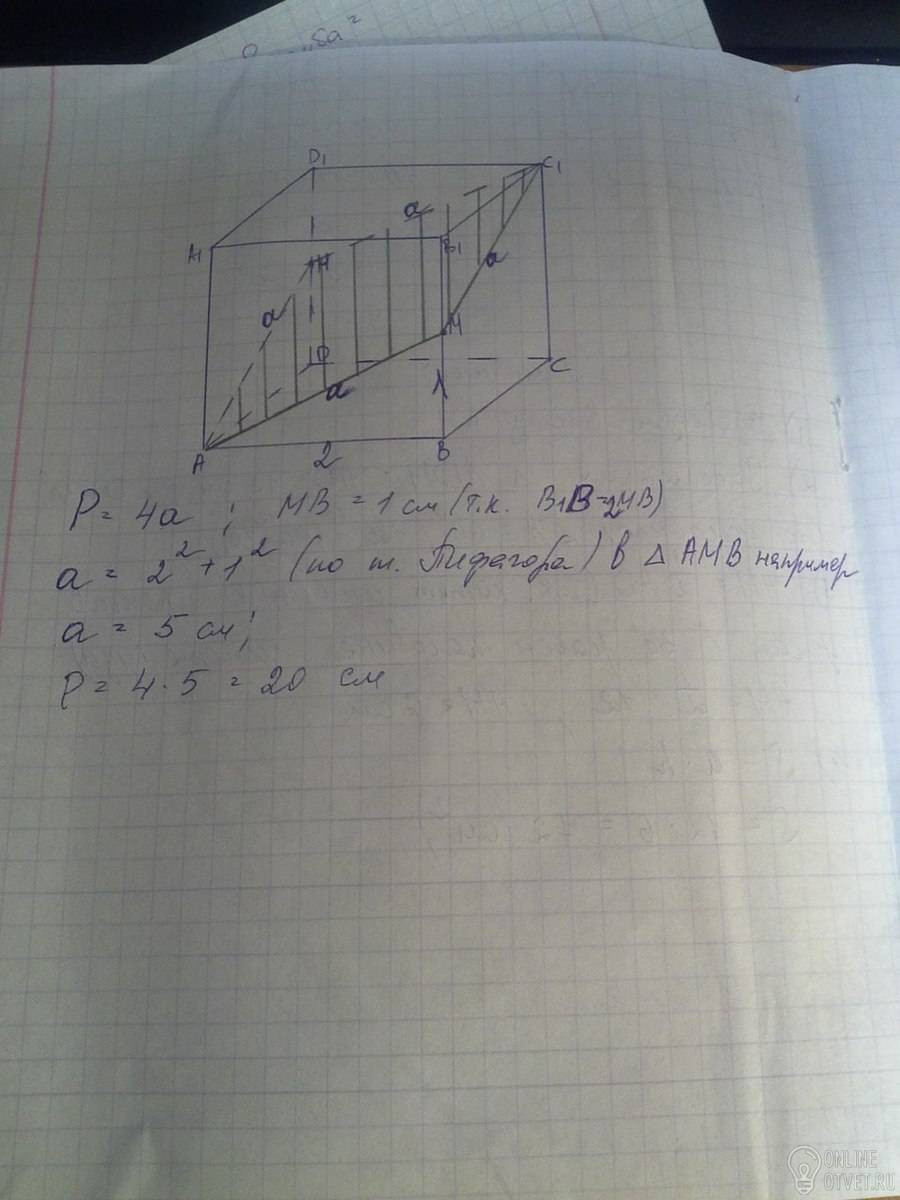 8a²
D₁
C₁
A₁
a
B₁
H
a
a
M
D
a
1
C
A
2
B
P = 4a ; MB = 1 см (т.к. B₁B=2MB)
a = 2² + 1² (по т. Пифагора) в Δ AMB например
a = 5 см;
P = 4 · 5 = 20 см
ONLINE
OTVET.RU